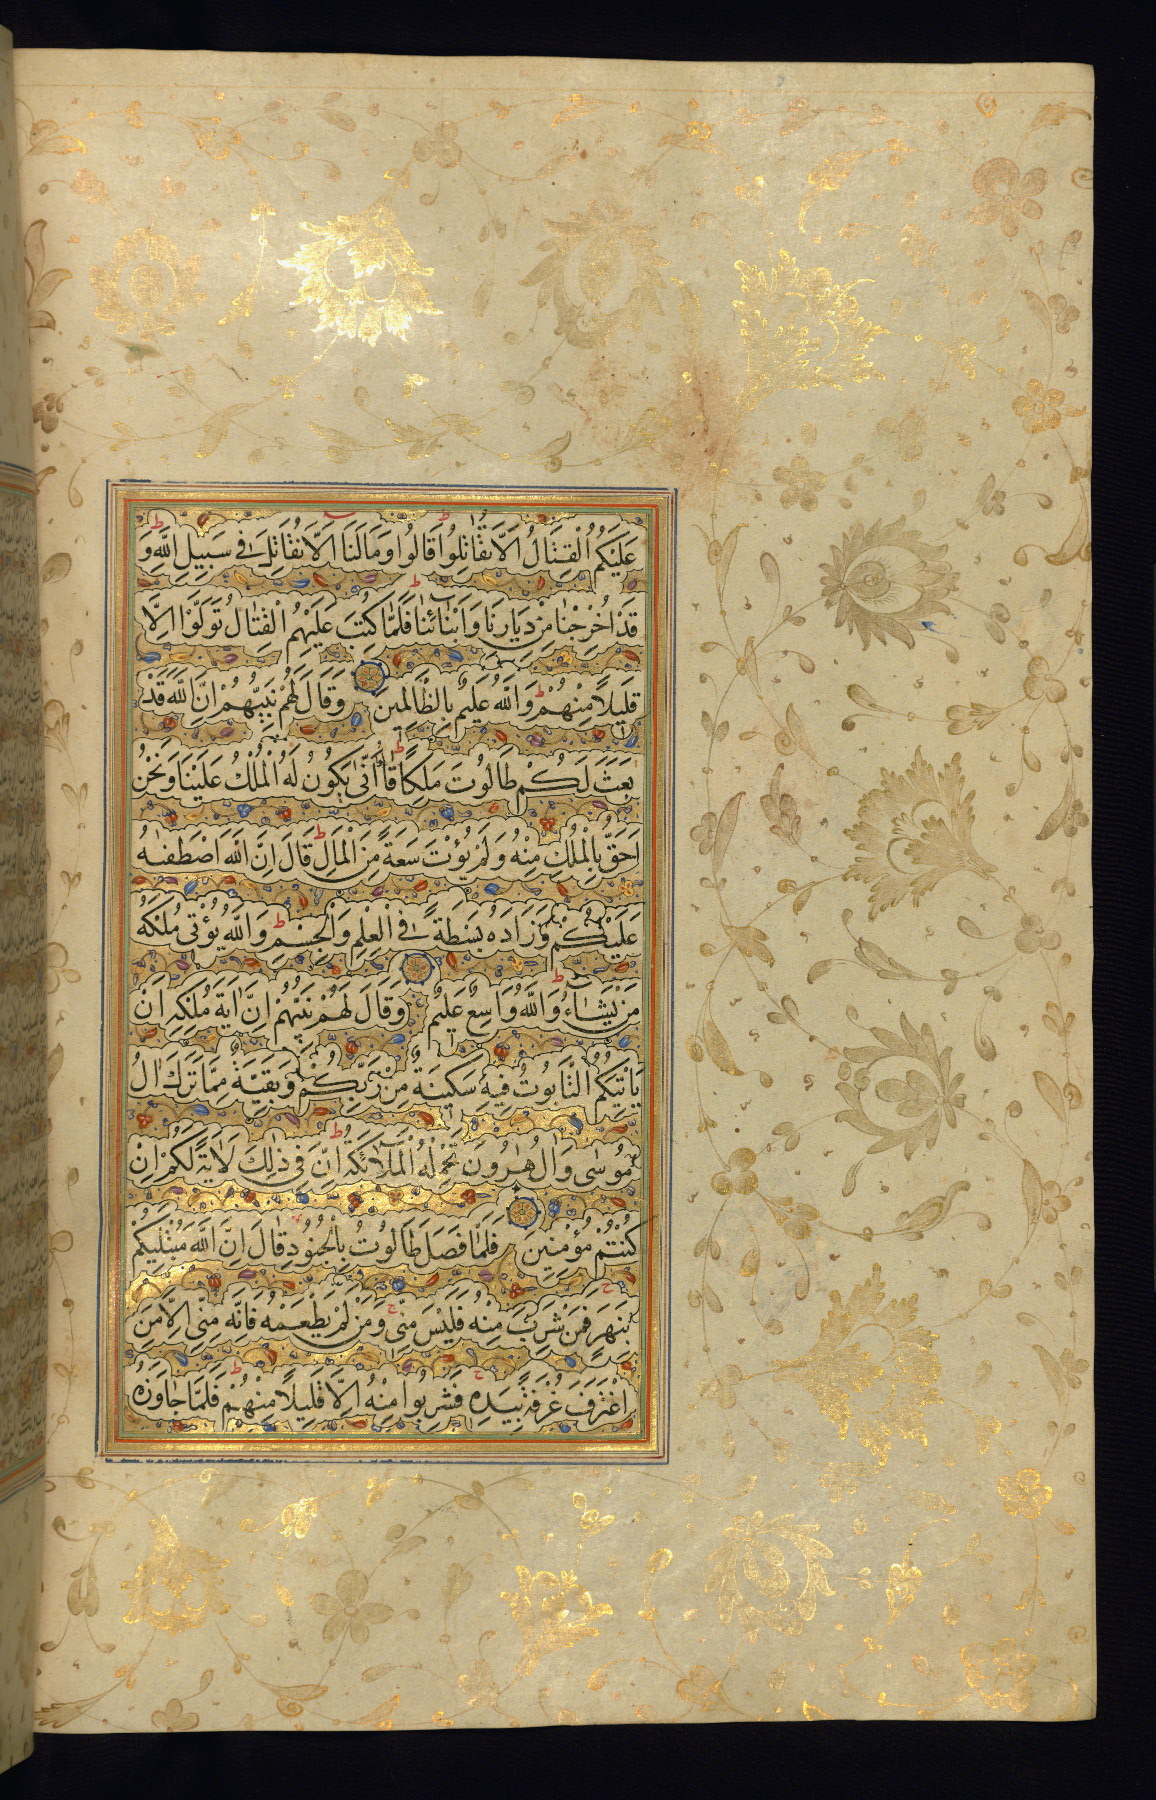 عَلَيْكُمُ الْقِتَالُ اَلَّا تُقَاتِلُوا قَالُوا وَمَا لَنَا اَلَّا نُقَاتِلَ فِى سَبِيلِ اللّٰهِ وَ
قَدْ اُخْرِجْنَا مِنْ دِيَارِنَا وَاَبْنَائِنَا فَلَمَّا كُتِبَ عَلَيْهِمُ الْقِتَالُ تَوَلَّوْا اِلَّا
قَلِيلًا مِنْهُمْ وَاللّٰهُ عَلِيمٌ بِالظَّالِمِينَ وَقَالَ لَهُمْ نَبِيُّهُمْ اِنَّ اللّٰهَ قَدْ
بَعَثَ لَكُمْ طَالُوتَ مَلِكًا قَالُوا اَنّٰى يَكُونُ لَهُ الْمُلْكُ عَلَيْنَا وَنَحْنُ
اَحَقُّ بِالْمُلْكِ مِنْهُ وَلَمْ يُؤْتَ سَعَةً مِنَ الْمَالِ قَالَ اِنَّ اللّٰهَ اصْطَفٰيهُ
عَلَيْكُمْ وَزَادَهُ بَسْطَةً فِى الْعِلْمِ وَالْجِسْمِ وَاللّٰهُ يُؤْتِى مُلْكَهُ
مَنْ يَشَاءُ وَاللّٰهُ وَاسِعٌ عَلِيمٌ وَقَالَ لَهُمْ نَبِيُّهُمْ اِنَّ اٰيَةَ مُلْكِهِ اَنْ
يَاْتِيَكُمُ التَّابُوتُ فِيهِ سَكِينَةٌ مِنْ رَبِّكُمْ وَبَقِيَّةٌ مِمَّا تَرَكَ اٰلُ
مُوسٰى وَاٰلُ هٰرُونَ تَحْمِلُهُ الْمَلٰٓائِكَةُ اِنَّ فِى ذٰلِكَ لَاٰيَةً لَكُمْ اِنْ
كُنْتُمْ مُؤْمِنِينَ فَلَمَّا فَصَلَ طَالُوتُ بِالْجُنُودِ قَالَ اِنَّ اللّٰهَ مُبْتَلِيكُمْ
بِنَهَرٍ فَمَنْ شَرِبَ مِنْهُ فَلَيْسَ مِنِّى وَمَنْ لَمْ يَطْعَمْهُ فَاِنَّهُ مِنِّى اِلَّا مَنِ
اغْتَرَفَ غُرْفَةً بِيَدِهِ فَشَرِبُوا مِنْهُ اِلَّا قَلِيلًا مِنْهُمْ فَلَمَّا جَاوَزَهُ